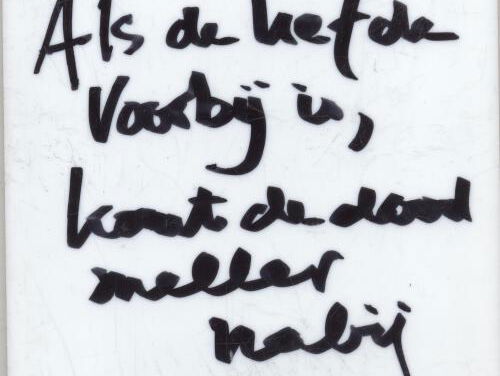 Als de liefde
voorbij is,
komt de dood
sneller
nabij